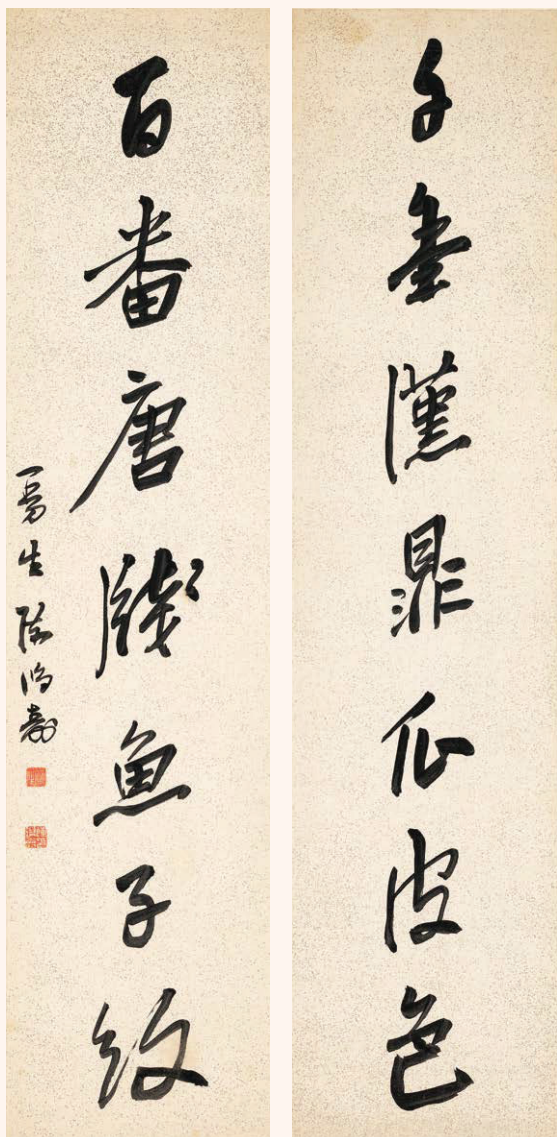 千漢鼎瓜皮色
百番唐牋魚子紋
曼生陳鴻壽